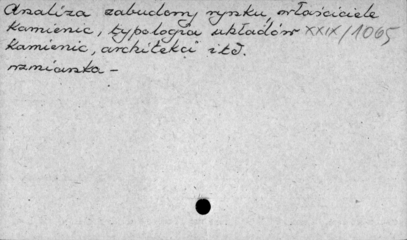 Analiza zabudowy rynku, właściciele
kamienic, typologia układów XXIX/1065
kamienic, architekci itd.
wzmianka –